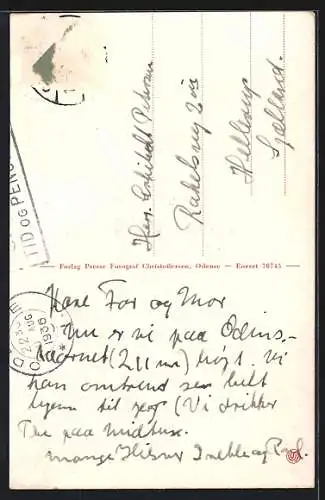 Herr Arkitekt Petersen
Rahelsvej 2
Hellerup
Sjælland.
TID OG PENGE
Forlag Presse Fotograf Christoffersen, Odense — Eneret 70745
ODENSE
1936
Kære Far og Mor
Nu er vi paa Odins-
taarnet (211 m) højt. Vi
kan omtrent se helt
hjem til jer (Vi drikker
The paa midten.
mange Hilsner